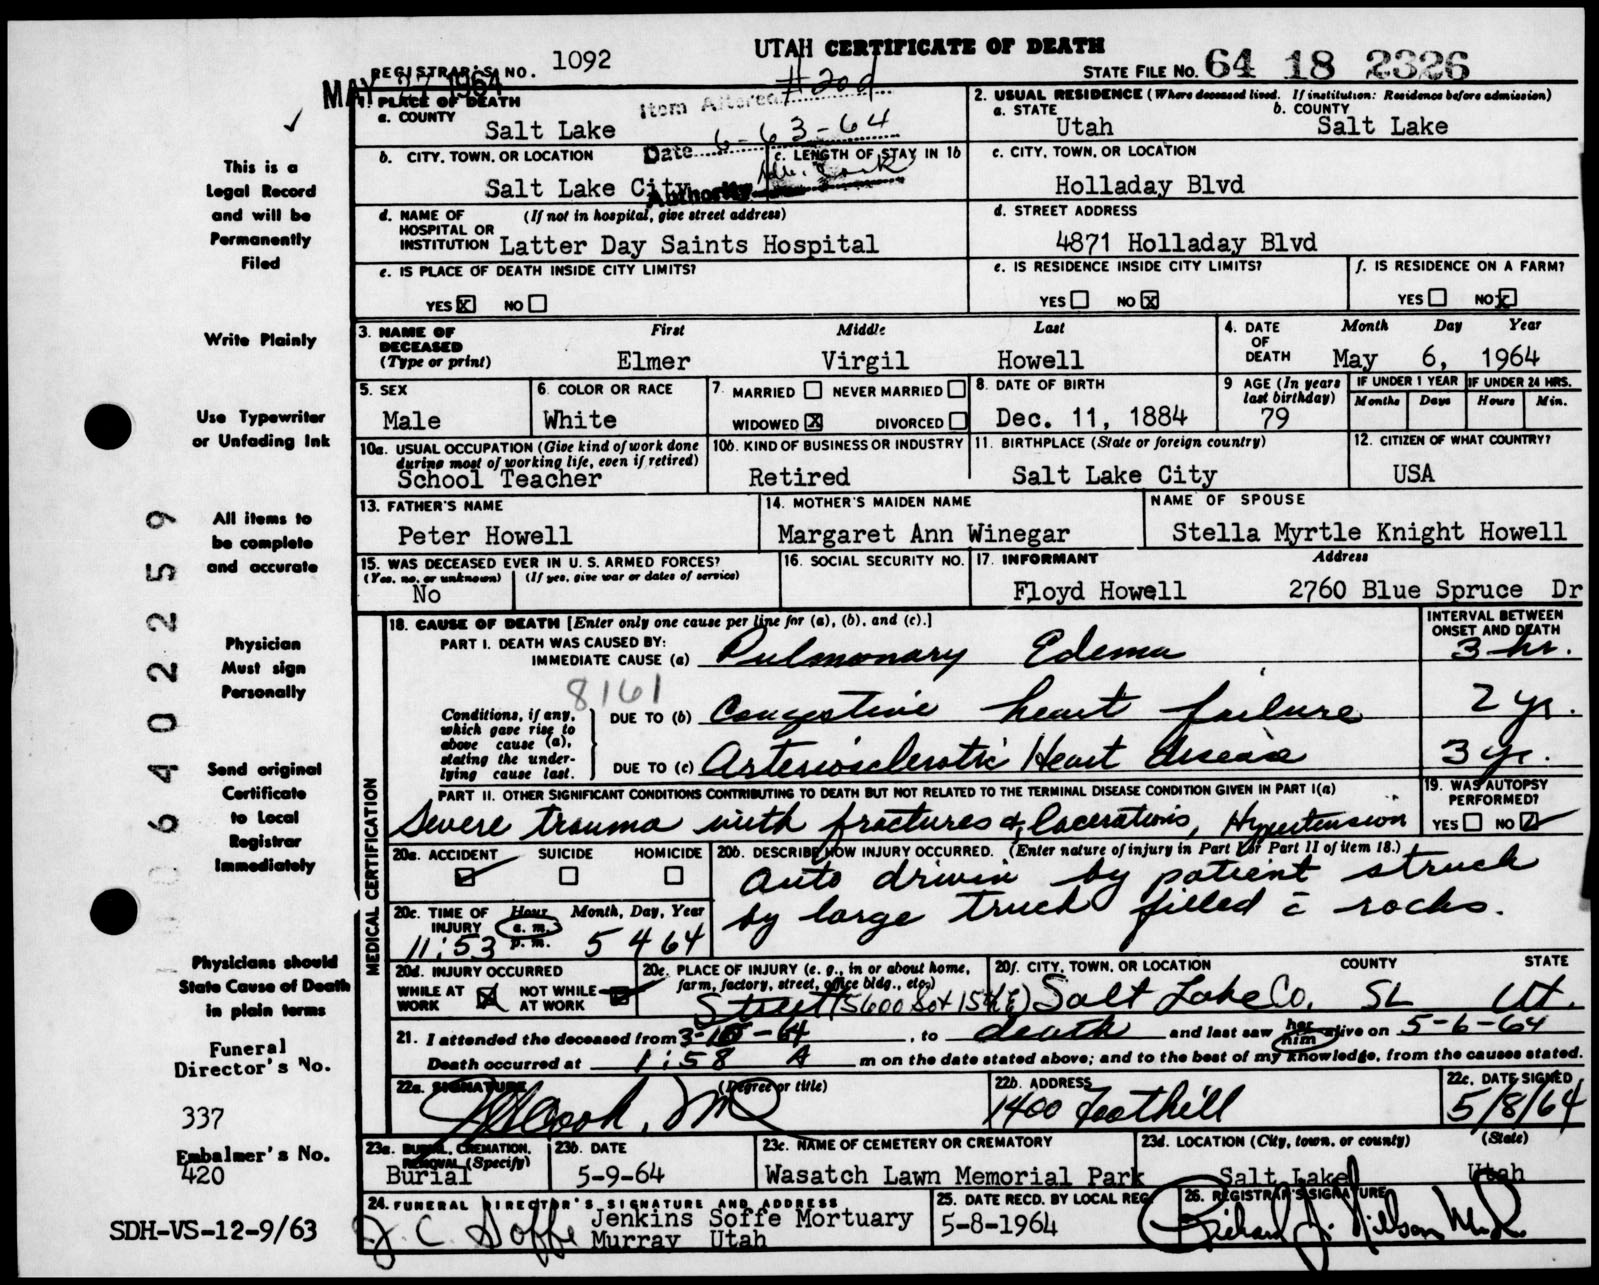 UTAH CERTIFICATE OF DEATH
REGISTRAR'S NO. 1092
STATE FILE NO. 64 18 2326
MAY 27 1964
Item Altered #20d
Date 6-63-64
Authority
1. PLACE OF DEATH
a. COUNTY
Salt Lake
b. CITY, TOWN, OR LOCATION
Salt Lake City
c. LENGTH OF STAY IN 1b
d. NAME OF HOSPITAL OR INSTITUTION (If not in hospital, give street address)
Latter Day Saints Hospital
e. IS PLACE OF DEATH INSIDE CITY LIMITS?
YES X NO
2. USUAL RESIDENCE (Where deceased lived. If institution: Residence before admission)
a. STATE
Utah
b. COUNTY
Salt Lake
c. CITY, TOWN, OR LOCATION
Holladay Blvd
d. STREET ADDRESS
4871 Holladay Blvd
e. IS RESIDENCE INSIDE CITY LIMITS?
YES NO X
f. IS RESIDENCE ON A FARM?
YES NO X
3. NAME OF DECEASED (Type or print)
First Middle Last
Elmer Virgil Howell
4. DATE OF DEATH
Month Day Year
May 6, 1964
5. SEX
Male
6. COLOR OR RACE
White
7. MARRIED NEVER MARRIED
WIDOWED X DIVORCED
8. DATE OF BIRTH
Dec. 11, 1884
9 AGE (In years last birthday)
79
IF UNDER 1 YEAR
Months Days
IF UNDER 24 HRS.
Hours Min.
10a. USUAL OCCUPATION (Give kind of work done during most of working life, even if retired)
School Teacher
10b. KIND OF BUSINESS OR INDUSTRY
Retired
11. BIRTHPLACE (State or foreign country)
Salt Lake City
12. CITIZEN OF WHAT COUNTRY?
USA
13. FATHER'S NAME
Peter Howell
14. MOTHER'S MAIDEN NAME
Margaret Ann Winegar
NAME OF SPOUSE
Stella Myrtle Knight Howell
15. WAS DECEASED EVER IN U. S. ARMED FORCES?
(Yes, no, or unknown) (If yes, give war or dates of service)
No
16. SOCIAL SECURITY NO.
17. INFORMANT Address
Floyd Howell 2760 Blue Spruce Dr
18. CAUSE OF DEATH [Enter only one cause per line for (a), (b), and (c).]
INTERVAL BETWEEN ONSET AND DEATH
PART I. DEATH WAS CAUSED BY:
IMMEDIATE CAUSE (a) Pulmonary Edema 3 hr.
8161
Conditions, if any, which gave rise to above cause (a), stating the underlying cause last.
DUE TO (b) Congestive heart failure 2 yr.
DUE TO (c) Arteriosclerotic Heart disease 3 yr.
PART II. OTHER SIGNIFICANT CONDITIONS CONTRIBUTING TO DEATH BUT NOT RELATED TO THE TERMINAL DISEASE CONDITION GIVEN IN PART I(a)
Severe trauma with fractures & lacerations, Hypertension
19. WAS AUTOPSY PERFORMED?
YES NO
MEDICAL CERTIFICATION
20a. ACCIDENT SUICIDE HOMICIDE
20b. DESCRIBE HOW INJURY OCCURRED. (Enter nature of injury in Part I or Part II of item 18.)
Auto driven by patient struck
by large truck filled c̄ rocks.
20c. TIME OF INJURY
Hour a. m. p. m. Month, Day, Year
11:53 5 4 64
20d. INJURY OCCURRED
WHILE AT WORK X NOT WHILE AT WORK
20e. PLACE OF INJURY (e. g., in or about home, farm, factory, street, office bldg., etc.)
Street (5600 So + 15th E)
20f. CITY, TOWN, OR LOCATION COUNTY STATE
Salt Lake Co, SL Ut.
21. I attended the deceased from 3-10-64, to death and last saw her him alive on 5-6-64
Death occurred at 1:58 A m on the date stated above; and to the best of my knowledge, from the causes stated.
22a. SIGNATURE (Degree or title)
Cook, MD
22b. ADDRESS
1400 Foothill
22c. DATE SIGNED
5/8/64
23a. BURIAL, CREMATION, REMOVAL (Specify)
Burial
23b. DATE
5-9-64
23c. NAME OF CEMETERY OR CREMATORY
Wasatch Lawn Memorial Park
23d. LOCATION (City, town, or county) (State)
Salt Lake Utah
24. FUNERAL DIRECTOR'S SIGNATURE AND ADDRESS
J. C. Soffe Jenkins Soffe Mortuary
Murray Utah
25. DATE RECD. BY LOCAL REG.
5-8-1964
26. REGISTRAR'S SIGNATURE
Richard J. Nilson M.D.
This is a
Legal Record
and will be
Permanently
Filed
Write Plainly
Use Typewriter
or Unfading Ink
All items to
be complete
and accurate
Physician
Must sign
Personally
Send original
Certificate
to Local
Registrar
Immediately
Physicians should
State Cause of Death
in plain terms
Funeral
Director's No.
337
Embalmer's No.
420
SDH-VS-12-9/63
006402259